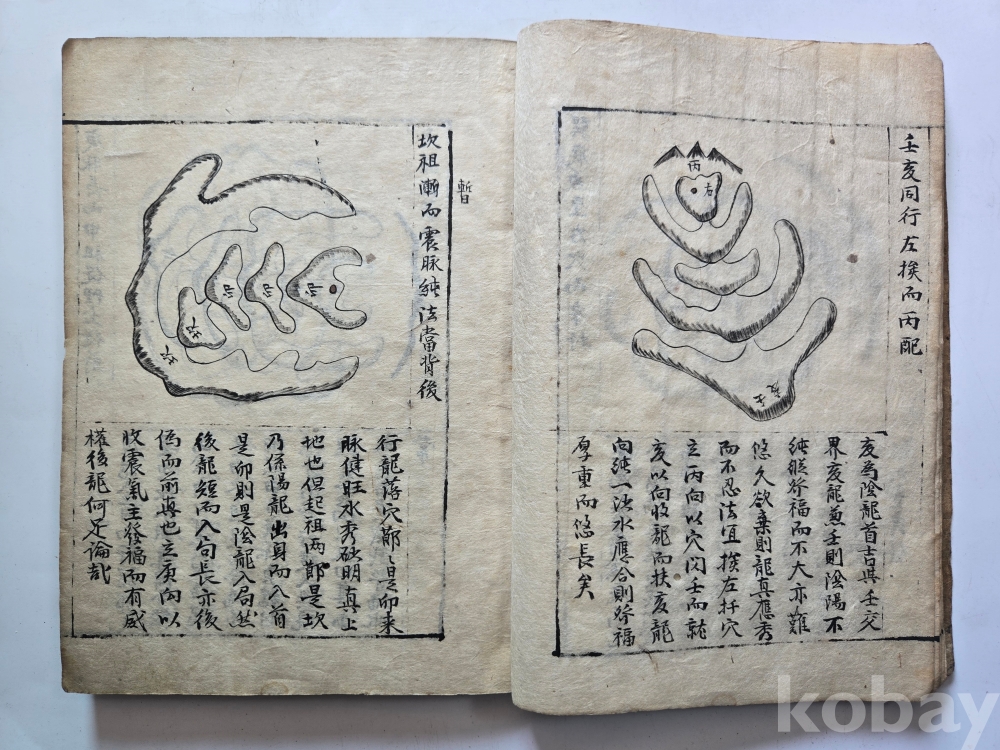 壬亥同行左挨而丙配
丙
右
亥壬
亥為陰龍首吉與壬交
界亥龍兼壬則陰陽不
純縱發福而不大亦難
悠久欲棄則龍真應秀
而不忍法宜挨左扦穴
立丙向以穴閃壬而就
亥以向收郡而扶亥龍
向純一法水應合則發福
厚重而悠長矣
坎祖漸而震脉純法當背後
暫
坎
坎
卯
卯
卯
行龍落穴節〻是卯来
脉健旺水秀砂明真上
地也但起祖两節是坎
乃係陽龍出身而入首
是卯則是陰龍入局然
後龍短而入句長亦後
偽而前真也立庚向以
收震氣主發福而有威
權後龍何足論哉
kobay